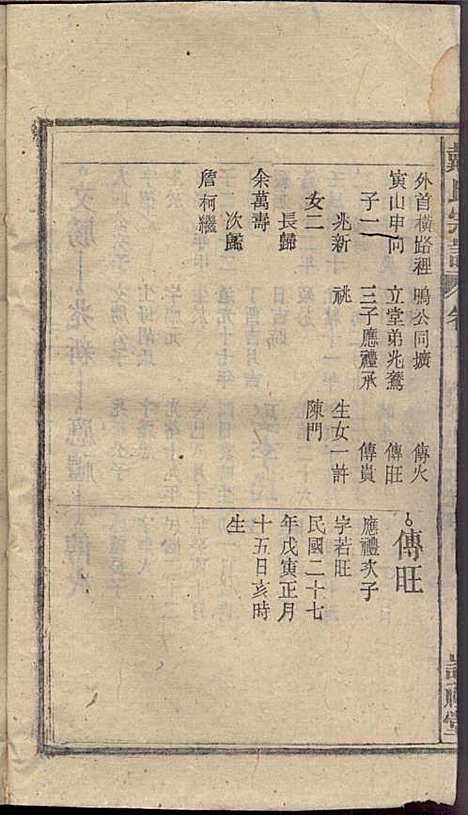 外首橫路裡
寅山申向
子一
兆新
女二
長歸
余萬壽
次歸
詹柯繼
鵰公同壙
立堂弟兆鶖
三子應禮承
祧
傳火
傳旺
傳貴
生女一許
陳門
傳旺
應禮次子
字若旺
民國二十七
年戊寅正月
十五日亥時
生
戴氏宗譜
卷